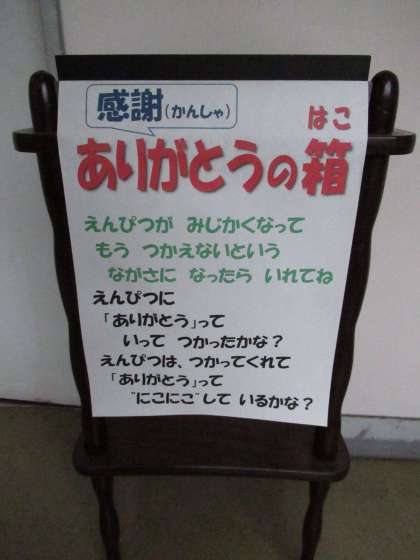 感謝(かんしゃ)
はこ
ありがとうの箱
えんぴつが みじかくなって
もう つかえないという
ながさに なったら いれてね
えんぴつに
「ありがとう」って
いって つかったかな?
えんぴつは、つかってくれて
「ありがとう」って
"にこにこ"して いるかな?